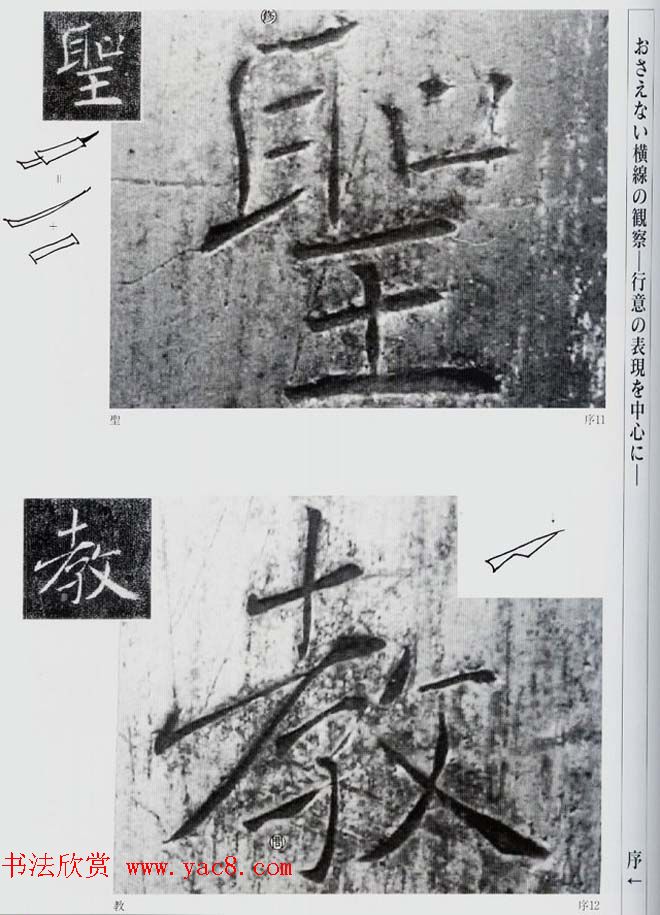 おさえない横線の観察―行意の表現を中心に―
聖
修
聖
聖
序11
教
教
教
序12
序←
书法欣赏 www.yac8.com